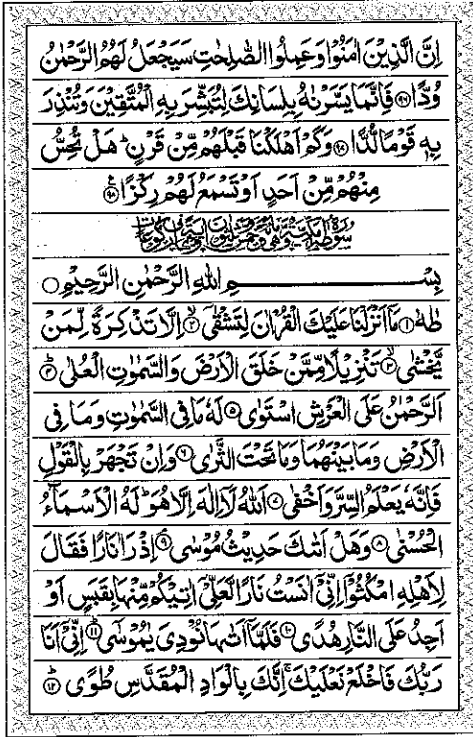 اِنَّ الَّذِيْنَ اٰمَنُوْا وَعَمِلُوا الصّٰلِحٰتِ سَيَجْعَلُ لَهُمُ الرَّحْمٰنُ
وُدًّا ۝۹۶ فَاِنَّمَا يَسَّرْنٰهُ بِلِسَانِكَ لِتُبَشِّرَ بِهِ الْمُتَّقِيْنَ وَتُنْذِرَ
بِهٖ قَوْمًا لُّدًّا ۝۹۷ وَكَمْ اَهْلَكْنَا قَبْلَهُمْ مِّنْ قَرْنٍ ؕ هَلْ تُحِسُّ
مِنْهُمْ مِّنْ اَحَدٍ اَوْ تَسْمَعُ لَهُمْ رِكْزًا ۝۹۸
سُوْرَةُ طٰهٰ مَكِّيَّةٌ
بِسْمِ اللّٰهِ الرَّحْمٰنِ الرَّحِيْمِ ۝
طٰهٰ ۝۱ مَاۤ اَنْزَلْنَا عَلَيْكَ الْقُرْاٰنَ لِتَشْقٰۤى ۝۲ اِلَّا تَذْكِرَةً لِّمَنْ
يَّخْشٰى ۝۳ تَنْزِيْلًا مِّمَّنْ خَلَقَ الْاَرْضَ وَالسَّمٰوٰتِ الْعُلٰى ۝۴
اَلرَّحْمٰنُ عَلَى الْعَرْشِ اسْتَوٰى ۝۵ لَهٗ مَا فِى السَّمٰوٰتِ وَمَا فِى
الْاَرْضِ وَمَا بَيْنَهُمَا وَمَا تَحْتَ الثَّرٰى ۝۶ وَاِنْ تَجْهَرْ بِالْقَوْلِ
فَاِنَّهٗ يَعْلَمُ السِّرَّ وَاَخْفٰى ۝۷ اَللّٰهُ لَاۤ اِلٰهَ اِلَّا هُوَ ؕ لَهُ الْاَسْمَآءُ
الْحُسْنٰى ۝۸ وَهَلْ اَتٰىكَ حَدِيْثُ مُوْسٰى ۝۹ اِذْ رَاٰ نَارًا فَقَالَ
لِاَهْلِهِ امْكُثُوْۤا اِنِّىْۤ اٰنَسْتُ نَارًا لَّعَلِّىْۤ اٰتِيْكُمْ مِّنْهَا بِقَبَسٍ اَوْ
اَجِدُ عَلَى النَّارِ هُدًى ۝۱۰ فَلَمَّاۤ اَتٰىهَا نُوْدِىَ يٰمُوْسٰى ۝۱۱ اِنِّىْۤ اَنَا
رَبُّكَ فَاخْلَعْ نَعْلَيْكَ ۚ اِنَّكَ بِالْوَادِ الْمُقَدَّسِ طُوًى ۝۱۲